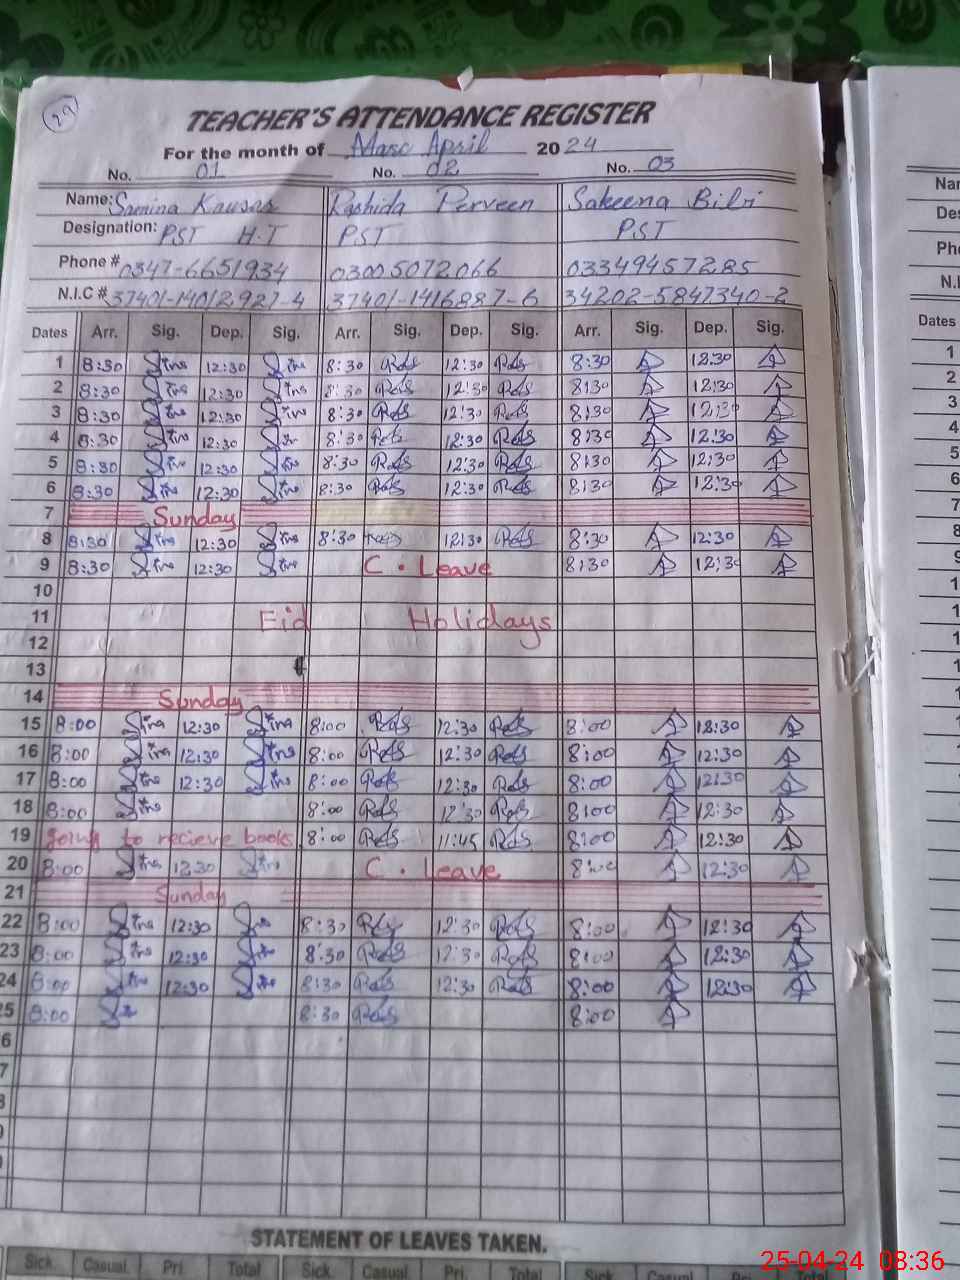 29
TEACHER'S ATTENDANCE REGISTER
For the month of April 2024
No. 01 No. 02 No. 03
Name: Samina Kausar Rashida Perveen Sakeena Bibi
Designation: PST H.T PST PST
Phone # 0347-6651934 03005072066 03349457285
N.I.C # 37401-14012927-4 37401-1416887-6 34202-5847340-2
Dates Arr. Sig. Dep. Sig. Arr. Sig. Dep. Sig. Arr. Sig. Dep. Sig.
1 8:30 12:30 8:30 12:30 8:30 12:30
2 8:30 12:30 8:30 12:30 8:30 12:30
3 8:30 12:30 8:30 12:30 8:30 12:30
4 8:30 12:30 8:30 12:30 8:30 12:30
5 8:30 12:30 8:30 12:30 8:30 12:30
6 8:30 12:30 8:30 12:30 8:30 12:30
7 Sunday
8 8:30 12:30 8:30 12:30 8:30 12:30
9 8:30 12:30 C. Leave 8:30 12:30
10
11 Eid Holidays
12
13
14 Sunday
15 8:00 12:30 8:00 12:30 8:00 12:30
16 8:00 12:30 8:00 12:30 8:00 12:30
17 8:00 12:30 8:00 12:30 8:00 12:30
18 8:00 8:00 12:30 8:00 12:30
19 going to recieve books 8:00 11:45 8:00 12:30
20 8:00 12:30 C. Leave 8:00 12:30
21 Sunday
22 8:00 12:30 8:30 12:30 8:00 12:30
23 8:00 12:30 8:30 12:30 8:00 12:30
24 8:00 12:30 8:30 12:30 8:00 12:30
5 8:00 8:30 8:00
6
7
8
STATEMENT OF LEAVES TAKEN.
Sick. Casual. Pri. Total Sick. Casual. Pri. Total Sick. Casual. Pri. Total
Dates
1
2
3
4
5
6
7
8
9
25-04-24 08:36